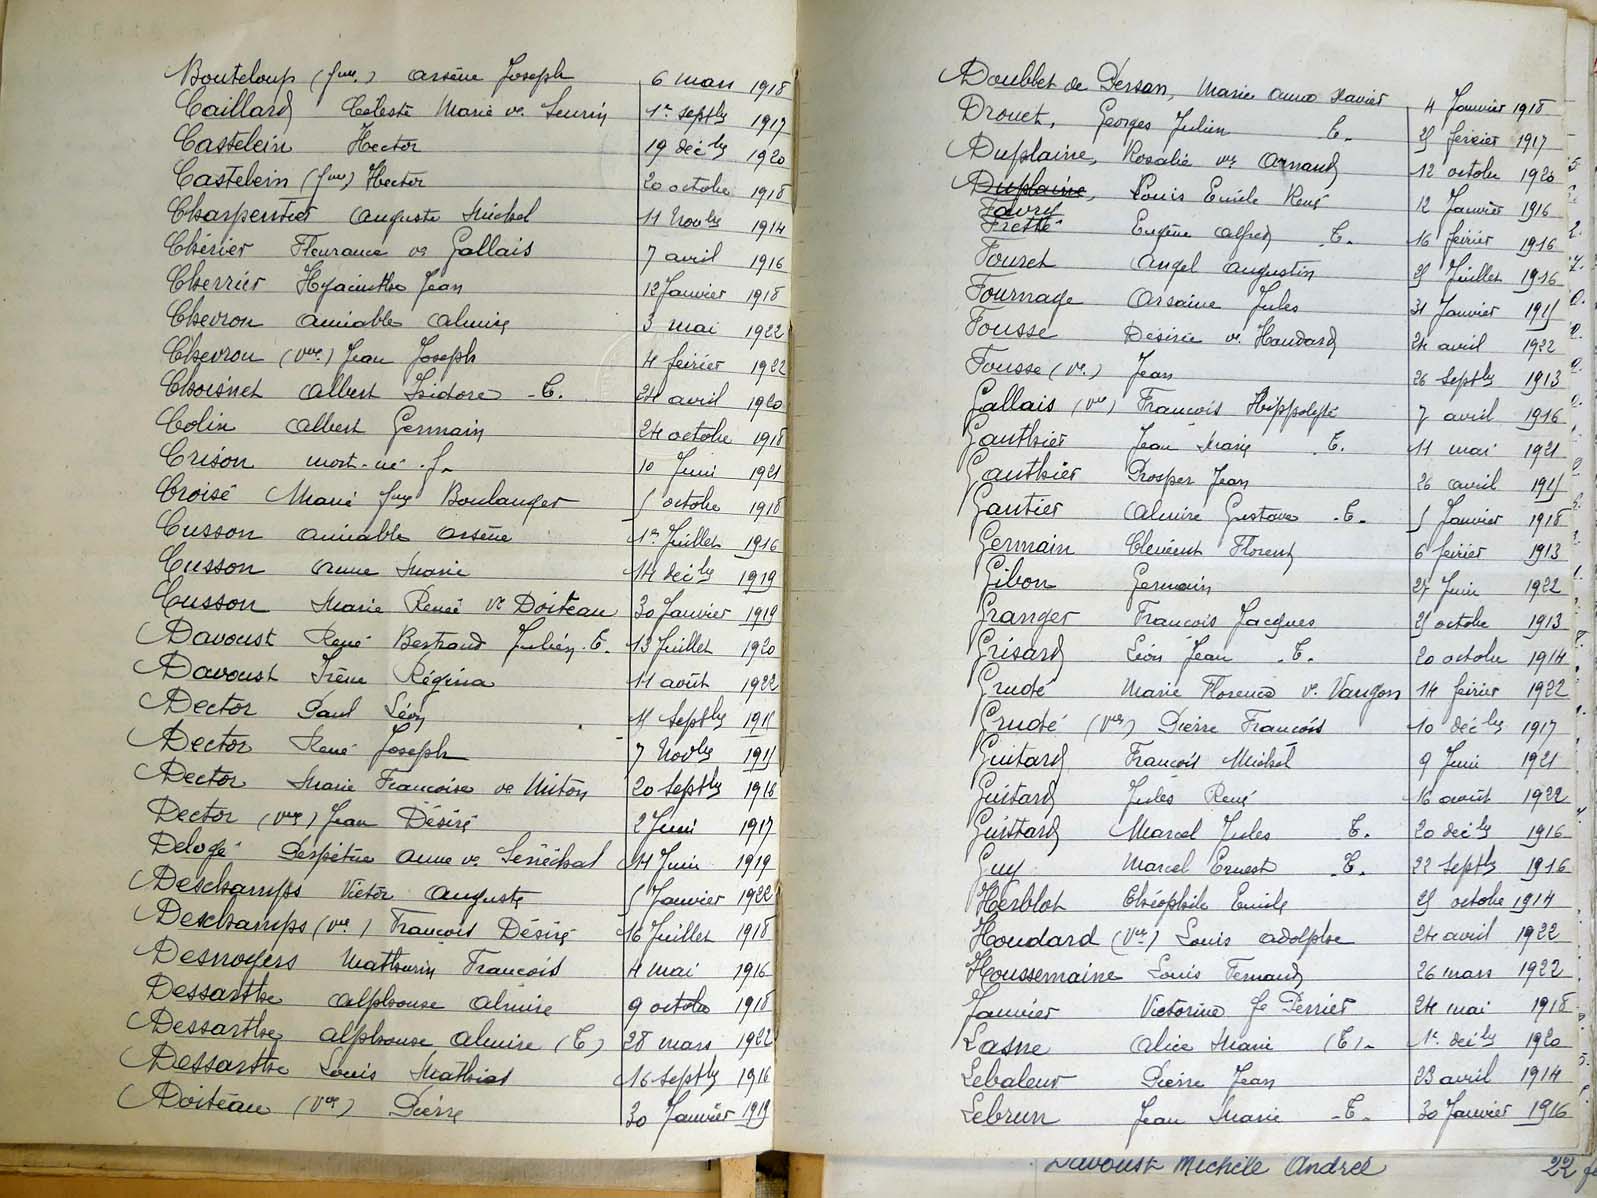 Bouteloup (fme.) Arsène Joseph 6 mars 1918
Caillard Céleste Marie ve. Seurin 1er septbre 1917
Castelein Hector 19 décbre 1920
Castelein (fme) Hector 20 octobre 1918
Charpentier Auguste Michel 11 Novbre 1914
Chérier Fleurance ve Gallais 7 avril 1916
Cherrier Hyacinthe Jean 12 Janvier 1918
Chevron Amiable Almire 3 mai 1922
Chevron (Vve.) Jean Joseph 4 février 1922
Choisnet Albert Isidore -T. 24 avril 1920
Colin Albert Germain 24 octobre 1918
Crison mort-né f- 10 Juin 1921
Croisé Marie fme Boulanger 5 octobre 1918
Cusson Amiable Arsène 1er Juillet 1916
Cusson Anne Marie 14 décbre 1919
Cusson Marie Renée Ve Doiteau 30 Janvier 1919
Davoust René Bertrand Julien -T. 13 Juillet 1920
Davoust Irène Régina 11 août 1922
Dector Paul Léon 4 Septbre 1915
Dector René Joseph 7 Novbre 1915
Dector Marie Françoise ve Miton 20 Septbre 1916
Dector (Vve) Jean Désiré 2 Juin 1917
Delogé Perpétue Anne ve. Sénéchal 14 Juin 1919
Deschamps Victor Auguste 5 Janvier 1922
Deschamps (Vve) François Désiré 16 Juillet 1918
Desnoyers Mathurin François 4 mai 1916
Dessarthe Alphonse Almire 9 octobre 1918
Dessarthe Alphonse Almire (T) 28 mars 1922
Dessarthe Louis Mathias 16 Septbre 1916
Doiteau (Vve) Pierre 30 Janvier 1919
Doublet de Persan, Marie Anne Xavier 4 Janvier 1918
Drouet, Georges Julien T. 25 février 1917
Duplaine, Rosalie ve Arnaud 12 octobre 1920
Duplaine, Louis Emile René 12 Janvier 1916
Favry
Fretté Eugène Alfred T. 16 février 1916
Fouret Angel Augustin 25 Juillet 1916
Fournage Arsaine Jules 31 Janvier 1915
Fousse Désirée ve. Houdard 24 avril 1922
Fousse (Ve.) Jean 26 Septbre 1913
Gallais (Vve) François Hippolyte 7 avril 1916
Gauthier Jean Marie T. 11 mai 1921
Gauthier Prosper Jean 26 avril 1915
Gautier Almire Gustave -T- 5 Janvier 1918
Germain Clément Florent 6 février 1913
Gibon Germain 27 Juin 1922
Granger François Jacques 25 octobre 1913
Grisard Léon Jean -T. 20 octobre 1914
Grudé Marie Florence ve. Vaugon 14 février 1922
Grudé (Vve) Pierre François 10 décbre 1917
Guitard François Michel 9 Juin 1921
Guitard Jules René 16 août 1922
Guittard Marcel Jules T. 20 décbre 1916
Guy Marcel Ernest -T. 22 Septbre 1916
Herblot Théophile Emile 25 octobre 1914
Houdard (Vve) Louis Adolphe 24 avril 1922
Houssemaine Louis Fernand 26 mars 1922
Janvier Victorine fe Perrier 24 mai 1918
Lasne Alice Marie (T)- 1er décbre 1920
Lebaleur Pierre Jean 23 avril 1914
Lebrun Jean Marie -T- 30 Janvier 1916
Davoust Michèle Andrée 22 fé